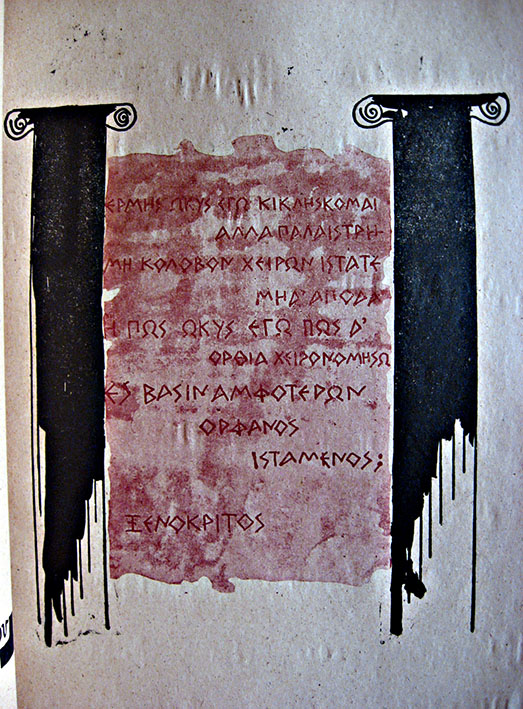 ΕΡΜΗΣ ΩΚΥΣ ΕΓΩ ΚΙΚΛΗΣΚΟΜΑΙ
ΑΛΛΑ ΠΑΛΑΙΣΤΡΗ-
ΜΗ ΚΟΛΟΒΟΝ ΧΕΙΡΩΝ ΙΣΤΑΤΕ
ΜΗΔ' ΑΠΟΔΑ
Η ΠΩΣ ΩΚΥΣ ΕΓΩ ΠΩΣ Δ'
ΟΡΘΙΑ ΧΕΙΡΟΝΟΜΗΣΩ
ΕΣ ΒΑΣΙΝ ΑΜΦΟΤΕΡΩΝ
ΟΡΦΑΝΟΣ
ΙΣΤΑΜΕΝΟΣ;
ΞΕΝΟΚΡΙΤΟΣ